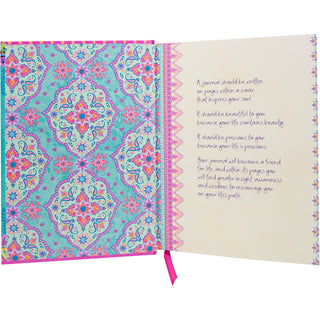 A journal should be written
on pages within a cover
that inspires your soul.
It should be beautiful to you
because your life contains beauty.
It should be precious to you
because your life is precious.
Your journal will become a friend
for life and within its pages you
will find greater insight, awareness
and wisdom, to encourage you
on your life's path.